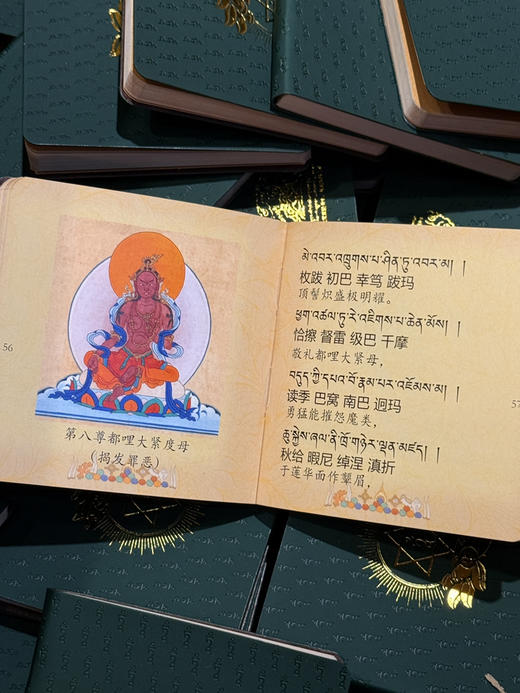 56
第八尊都哩大紧度母
(揭发罪恶)
མེ་འབར་འཁྲུགས་པ་ཤིན་ཏུ་འབར་མ། །
枚跋 初巴 幸笃 跋玛
顶髻炽盛极明耀。
ཕྱག་འཚལ་ཏུ་རེ་འཇིགས་པ་ཆེན་མོས། །
恰擦 督雷 级巴 千摩
敬礼都哩大紧母，
བདུད་ཀྱི་དཔའ་བོ་རྣམ་པར་འཇོམས་མ། །
读季 巴窝 南巴 迥玛
勇猛能摧怨魔类，
ཆུ་སྐྱེས་ཞལ་ནི་ཁྲོ་གཉེར་ལྡན་མཛད། །
秋给 暇尼 绰涅 滇折
于莲华面作颦眉，
57